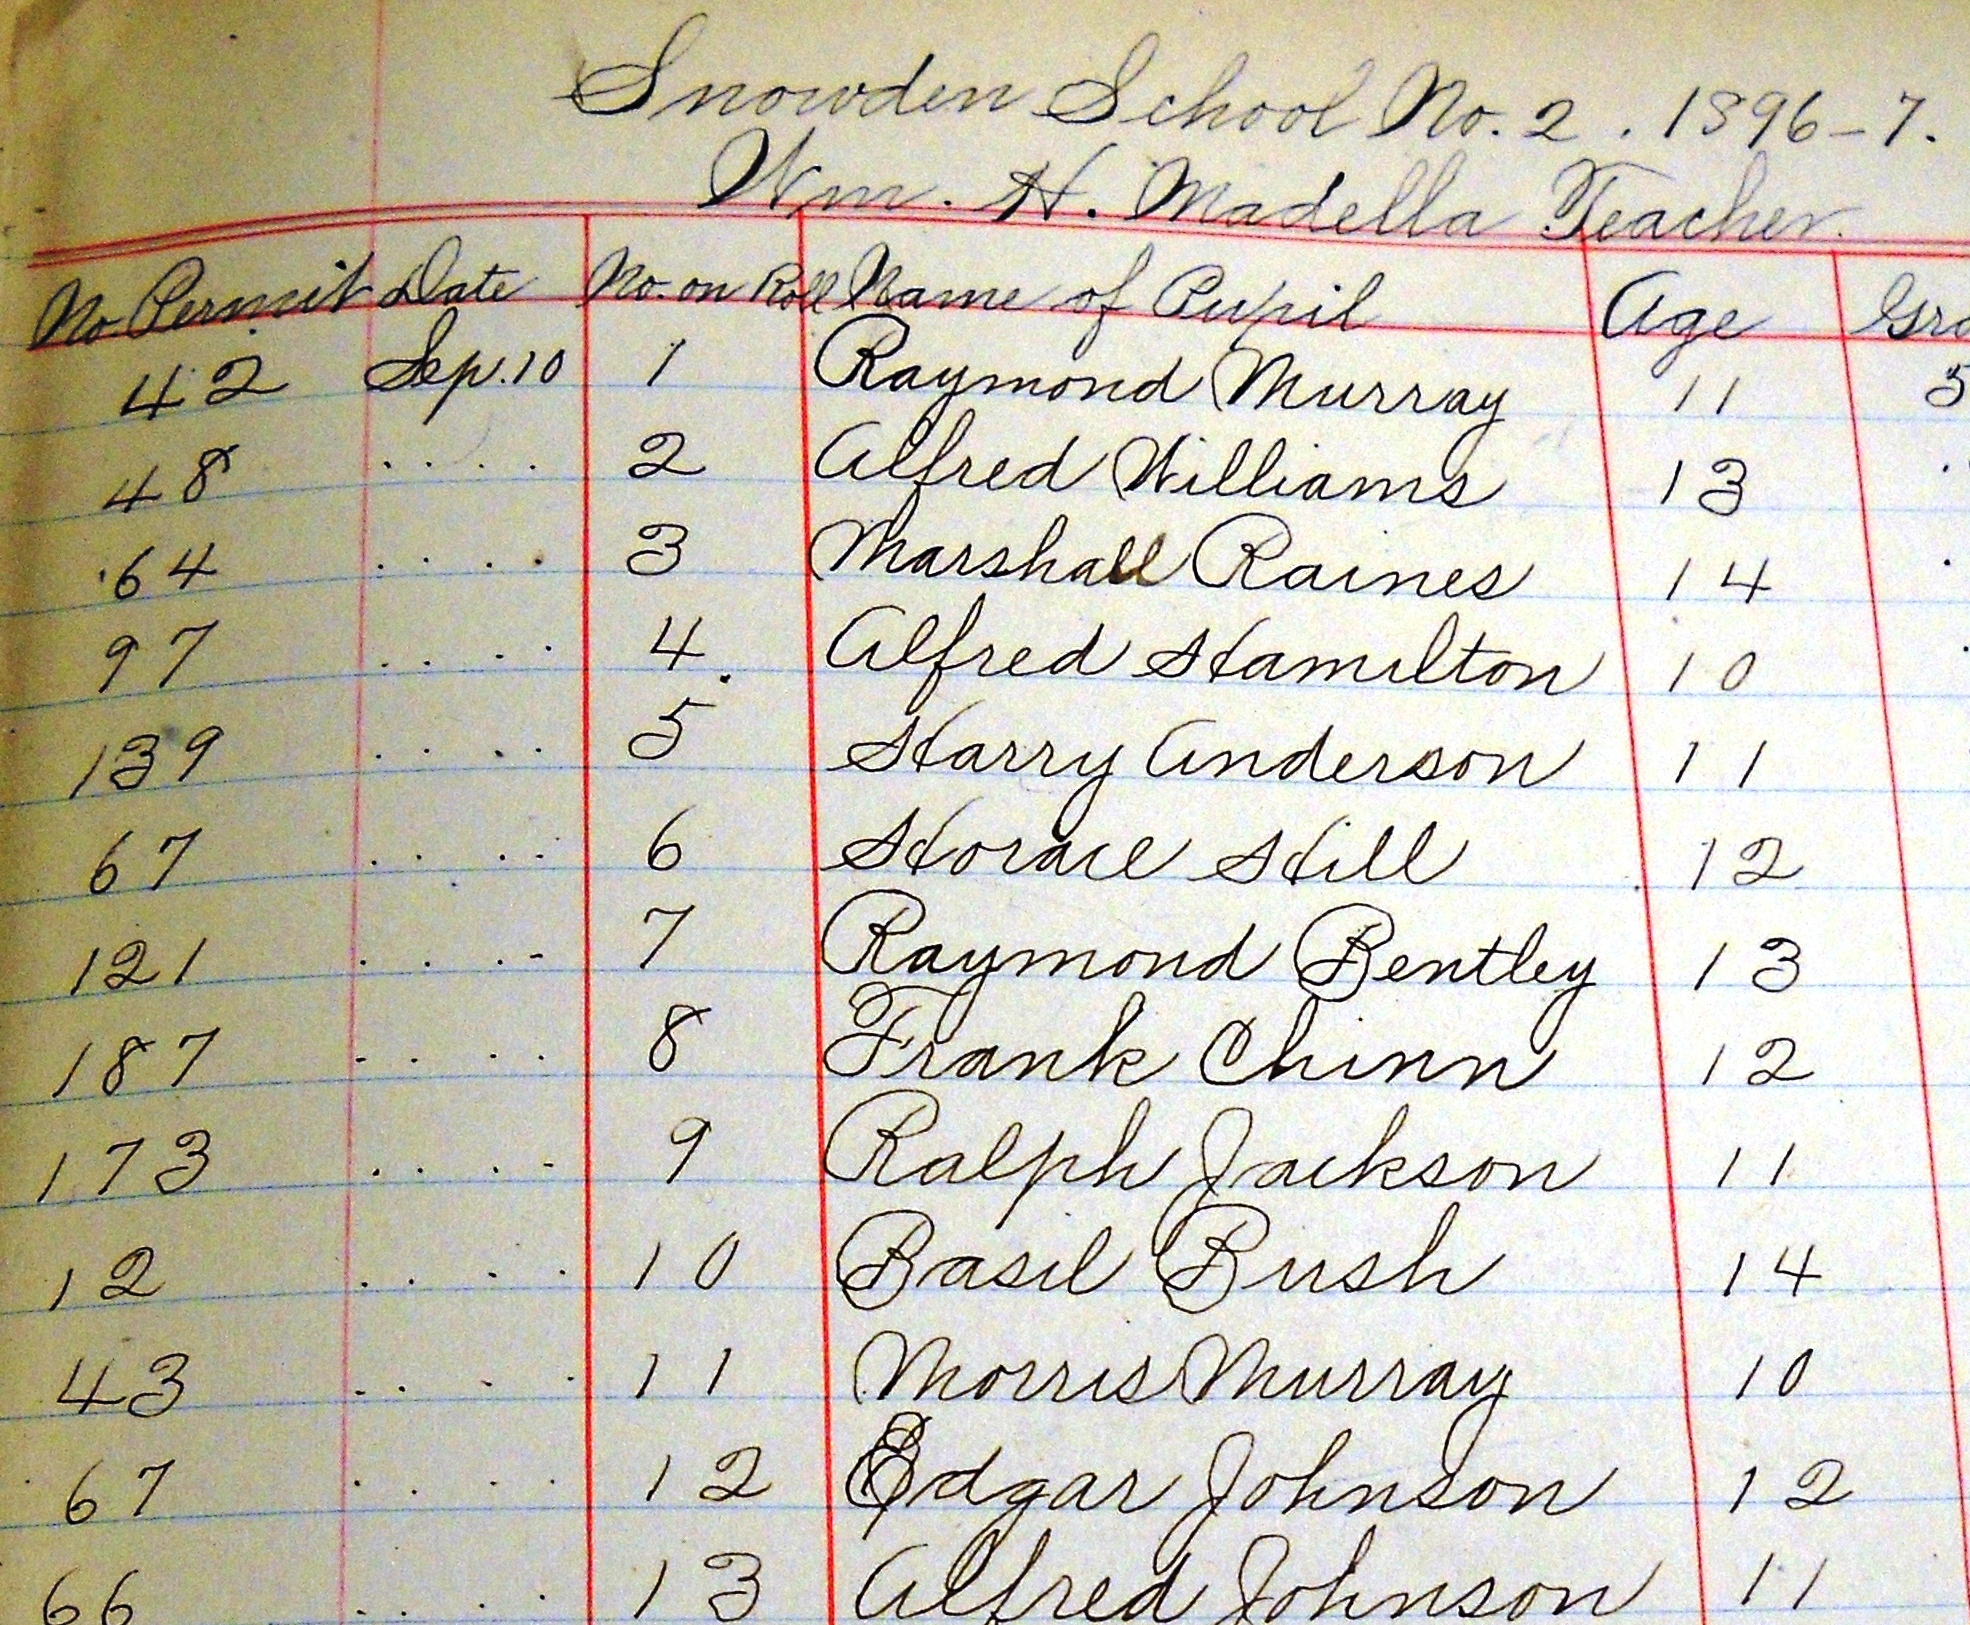 Snowden School No. 2. 1896-7.
Wm. H. Madella Teacher.
No. Permit Date No. on Roll Name of Pupil Age Gra
42 Sep. 10 1 Raymond Murray 11 5
48 .... 2 Alfred Williams 13 .
64 .... 3 Marshall Raines 14 .
97 .... 4. Alfred Hamilton 10 .
139 .... 5 Harry Anderson 11
67 .... 6 Horace Hill 12
121 .... 7 Raymond Bentley 13
187 .... 8 Frank Chinn 12
173 .... 9 Ralph Jackson 11
12 .... 10 Basil Bush 14
43 .... 11 Morris Murray 10
67 .... 12 Edgar Johnson 12
66 .... 13 Alfred Johnson 11